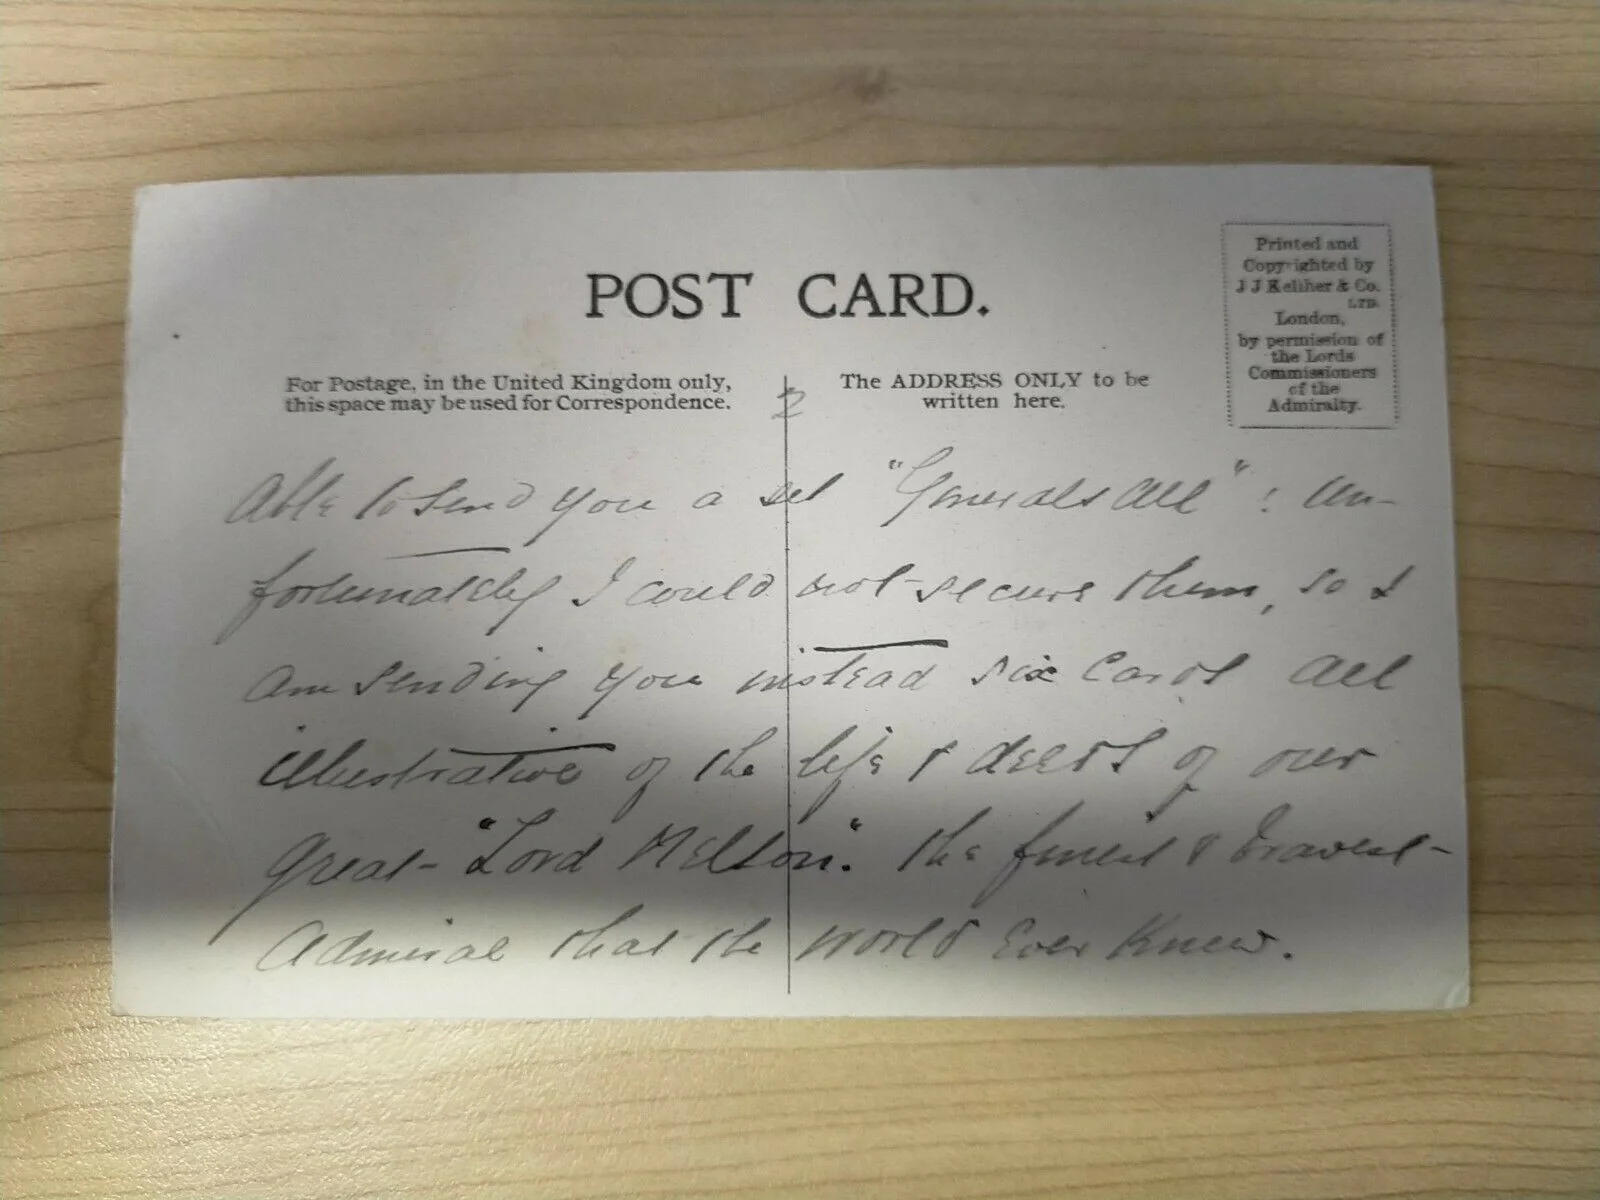 POST CARD.
Printed and
Copyrighted by
J J Keliher & Co.
LTD.
London,
by permission of
the Lords
Commissioners
of the
Admiralty.
For Postage, in the United Kingdom only,
this space may be used for Correspondence.
The ADDRESS ONLY to be
written here.
2
Able to send you a set "Generals All": Un-
fortunately I could not secure them, so I
am sending you instead six Cards all
illustrative of the life & deeds of our
great "Lord Nelson". The finest & bravest
Admiral that the world Ever Knew.